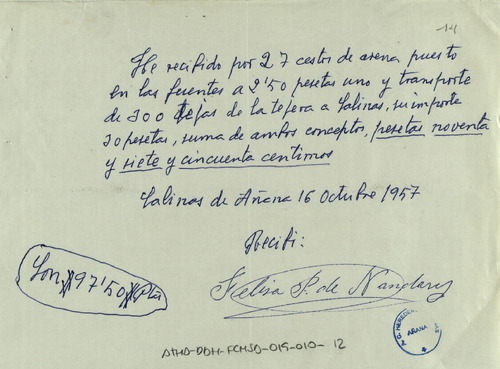 14
He recibido por 27 cestos de arena puesto
en las fuentes a 2'50 pesetas uno y transporte
de 300 tejas de la tejera a Salinas, su importe
30 pesetas, suma de ambos conceptos, pesetas noventa
y siete y cincuenta centimos
Salinas de Añana 16 Octubre 1957
Recibi:
Son 97'50 Pts
Felisa P. de Nanclares
AÑANA
ATHA-DDH-FCMSO-019-010-12